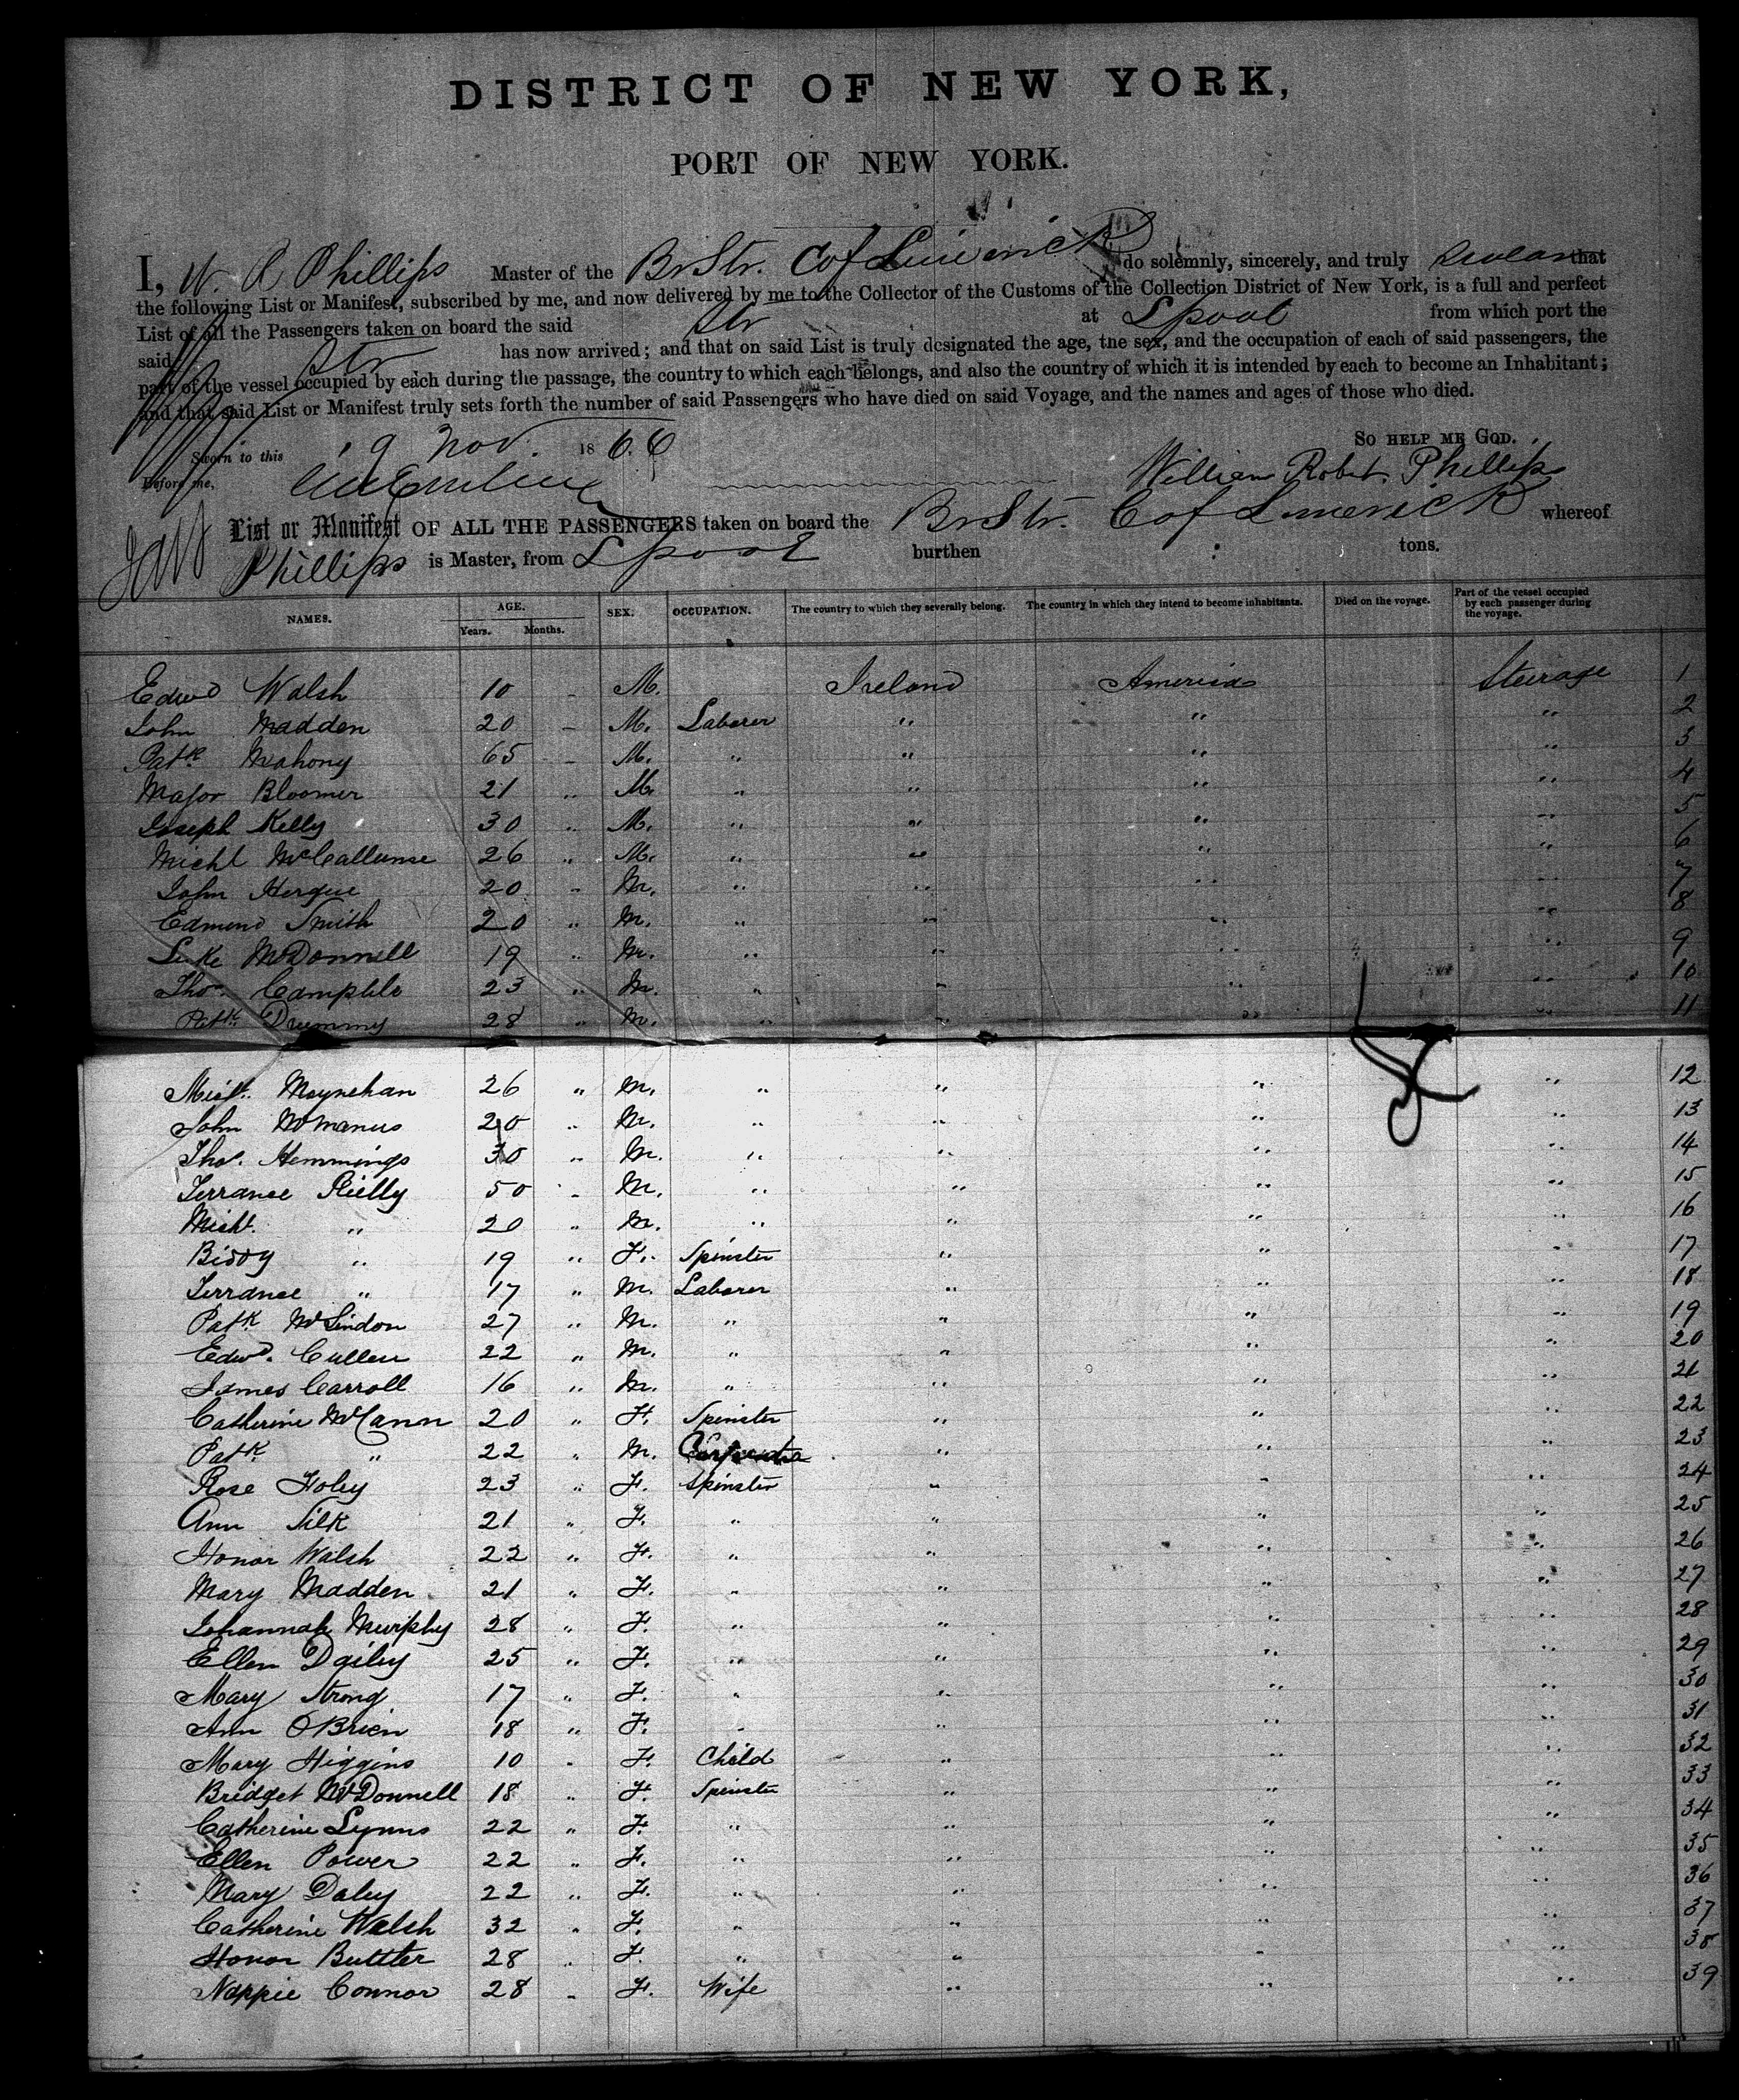 DISTRICT OF NEW YORK,
PORT OF NEW YORK.
I, W. R Phillips Master of the Br Str. C of Limerick do solemnly, sincerely, and truly that
the following List or Manifest, subscribed by me, and now delivered by me to the Collector of the Customs of the Collection District of New York, is a full and perfect
List of all the Passengers taken on board the said Str at Lpool from which port the
said Str has now arrived; and that on said List is truly designated the age, the sex, and the occupation of each of said passengers, the
part of the vessel occupied by each during the passage, the country to which each belongs, and also the country of which it is intended by each to become an Inhabitant;
and that said List or Manifest truly sets forth the number of said Passengers who have died on said Voyage, and the names and ages of those who died.
SO HELP ME GOD.
Sworn to this 9 Nov. 1866
Before me, William Robt. Phillips
List or Manifest OF ALL THE PASSENGERS taken on board the Br Str. C of Limerick whereof
Phillips is Master, from Lpool burthen tons.
NAMES. AGE. Years. Months. SEX. OCCUPATION. The country to which they severally belong. The country in which they intend to become inhabitants. Died on the voyage. Part of the vessel occupied by each passenger during the voyage.
Edwd Walsh 10 - M. Ireland America Steerage 1
John Madden 20 - M. Laborer " " " 2
Patk Mahony 65 - M. " " " " 3
Major Bloomer 21 " M. " " " " 4
Joseph Kelly 30 " M. " " " " 5
Michl McCallume 26 " M. " " " " 6
John Hergue 20 " M. " " " " 7
Edmund Smith 20 " M. " " " " 8
Luke McDonnell 19 " M. " " " " 9
Thos. Campble 23 " M. " " " " 10
Patk Drummy 28 " M. " " " " 11
Michl. Moynehan 26 " M. " " " " 12
John McManus 20 " M. " " " " 13
Thos. Hemmings 30 " M. " " " " 14
Terrance Rielly 50 - M. " " " " 15
Michl. " 20 " M. " " " " 16
Biddy " 19 " F. Spinster " " " 17
Terrance " 17 " M. Laborer " " " 18
Patk McLindon 27 " M. " " " " 19
Edwd. Cullen 22 " M. " " " " 20
James Carroll 16 " M. " " " " 21
Catherine McCann 20 " F. Spinster " " " 22
Patk " 22 " M. Carpenter " " " 23
Rose Foley 23 " F. Spinster " " " 24
Ann Silk 21 " F. " " " " 25
Honor Walsh 22 " F. " " " " 26
Mary Madden 21 " F. " " " " 27
Johannah Murphy 28 " F. " " " " 28
Ellen Dailey 25 " F. " " " " 29
Mary Strong 17 " F. " " " " 30
Ann O'Brien 18 " F. " " " " 31
Mary Higgins 10 - F. Child " " " 32
Bridget McDonnell 18 " F. Spinster " " " 33
Catherine Lynns 22 " F. " " " " 34
Ellen Power 22 " F. " " " " 35
Mary Daley 22 " F. " " " " 36
Catherine Walsh 32 " F. " " " " 37
Honor Buttler 28 " F. " " " " 38
Nappie Connor 28 - F. Wife " " " 39